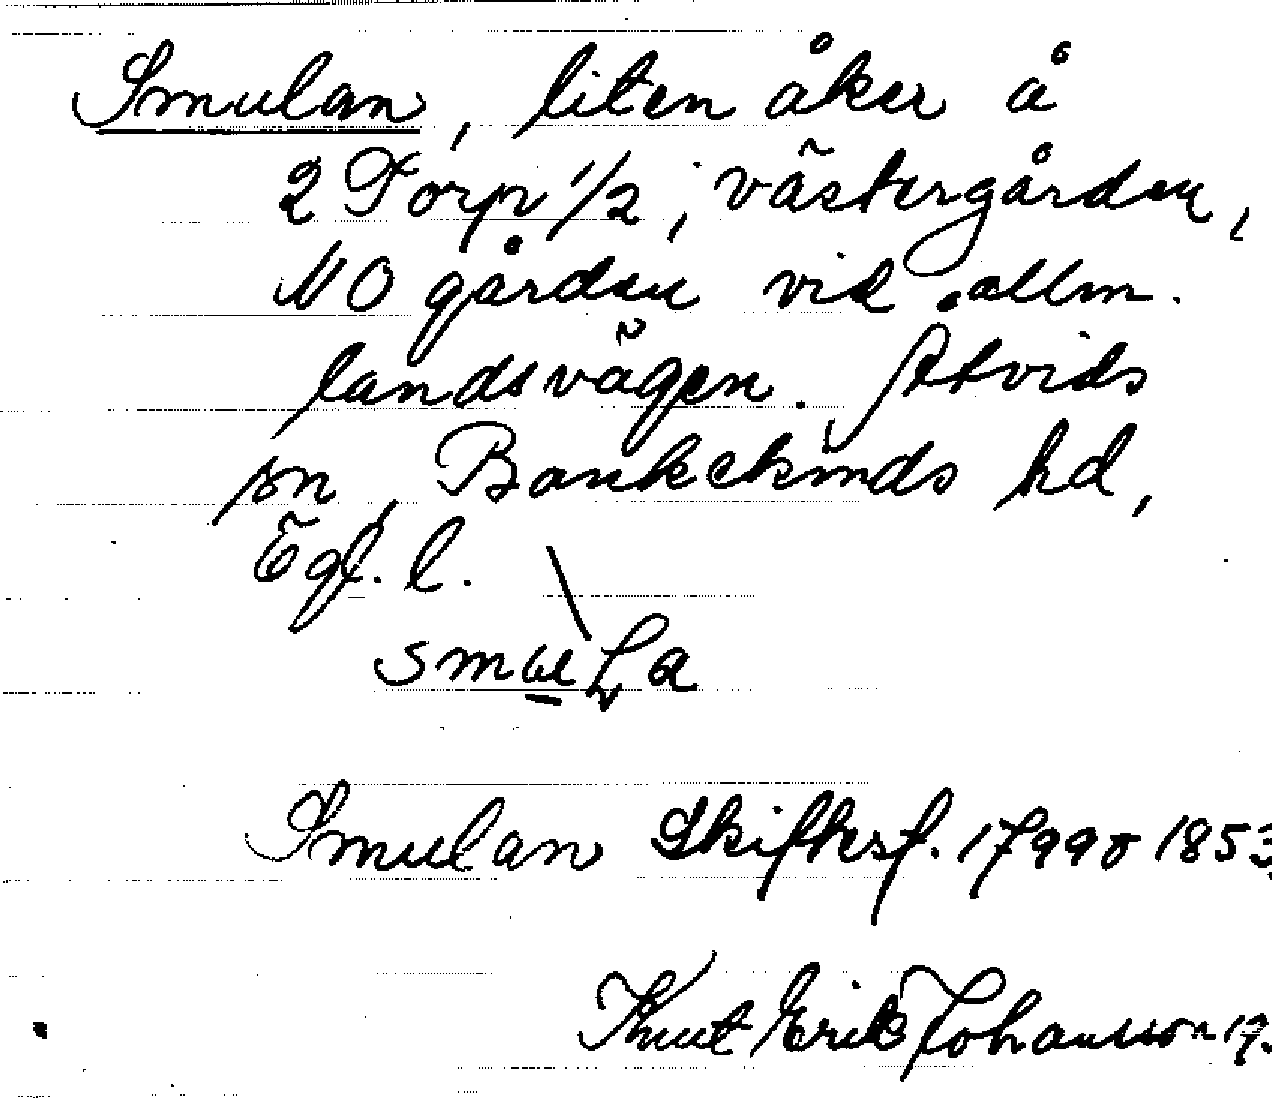 Smulan, liten åker å
2 Torp 1/2, västergården,
NO gården vid allm.
landsvägen. Åtvids
sn, Bankekinds hd,
Ögl. l.
Smulan Skifksf. 1799 o 1853
Knut Erik Johansson 19